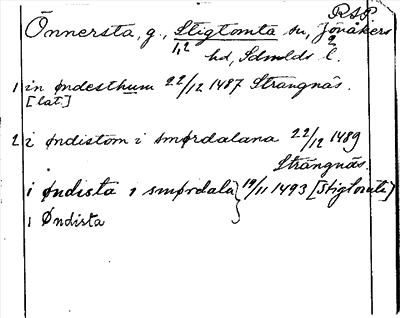 RSP.
Önnersta, g., Stigtomta sn, Jönåkers
1,2 2
hd, Sdmlds l.
1 in øndesthum 22/12 1487 Strängnäs.
[lat.]
2 i øndistom i smørdalana 22/12 1489
Strängnäs.
i øndista i smørdala } 19/11 1493 [Stigtomta]
i Øndista